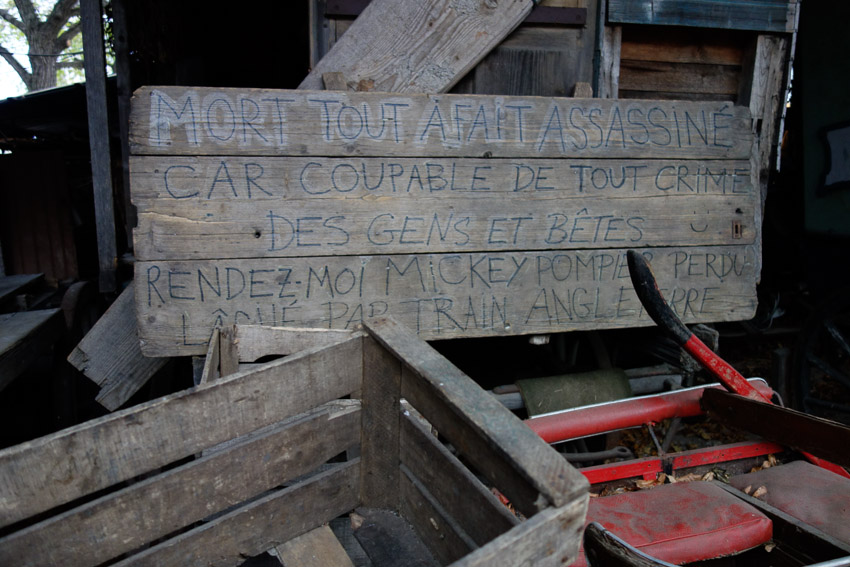 MORT TOUT À FAIT ASSASSINÉ
CAR COUPABLE DE TOUT CRIME
DES GENS ET BÊTES
RENDEZ-MOI MICKEY POMPIER PERDU
LÂCHÉ PAR TRAIN ANGLETERRE